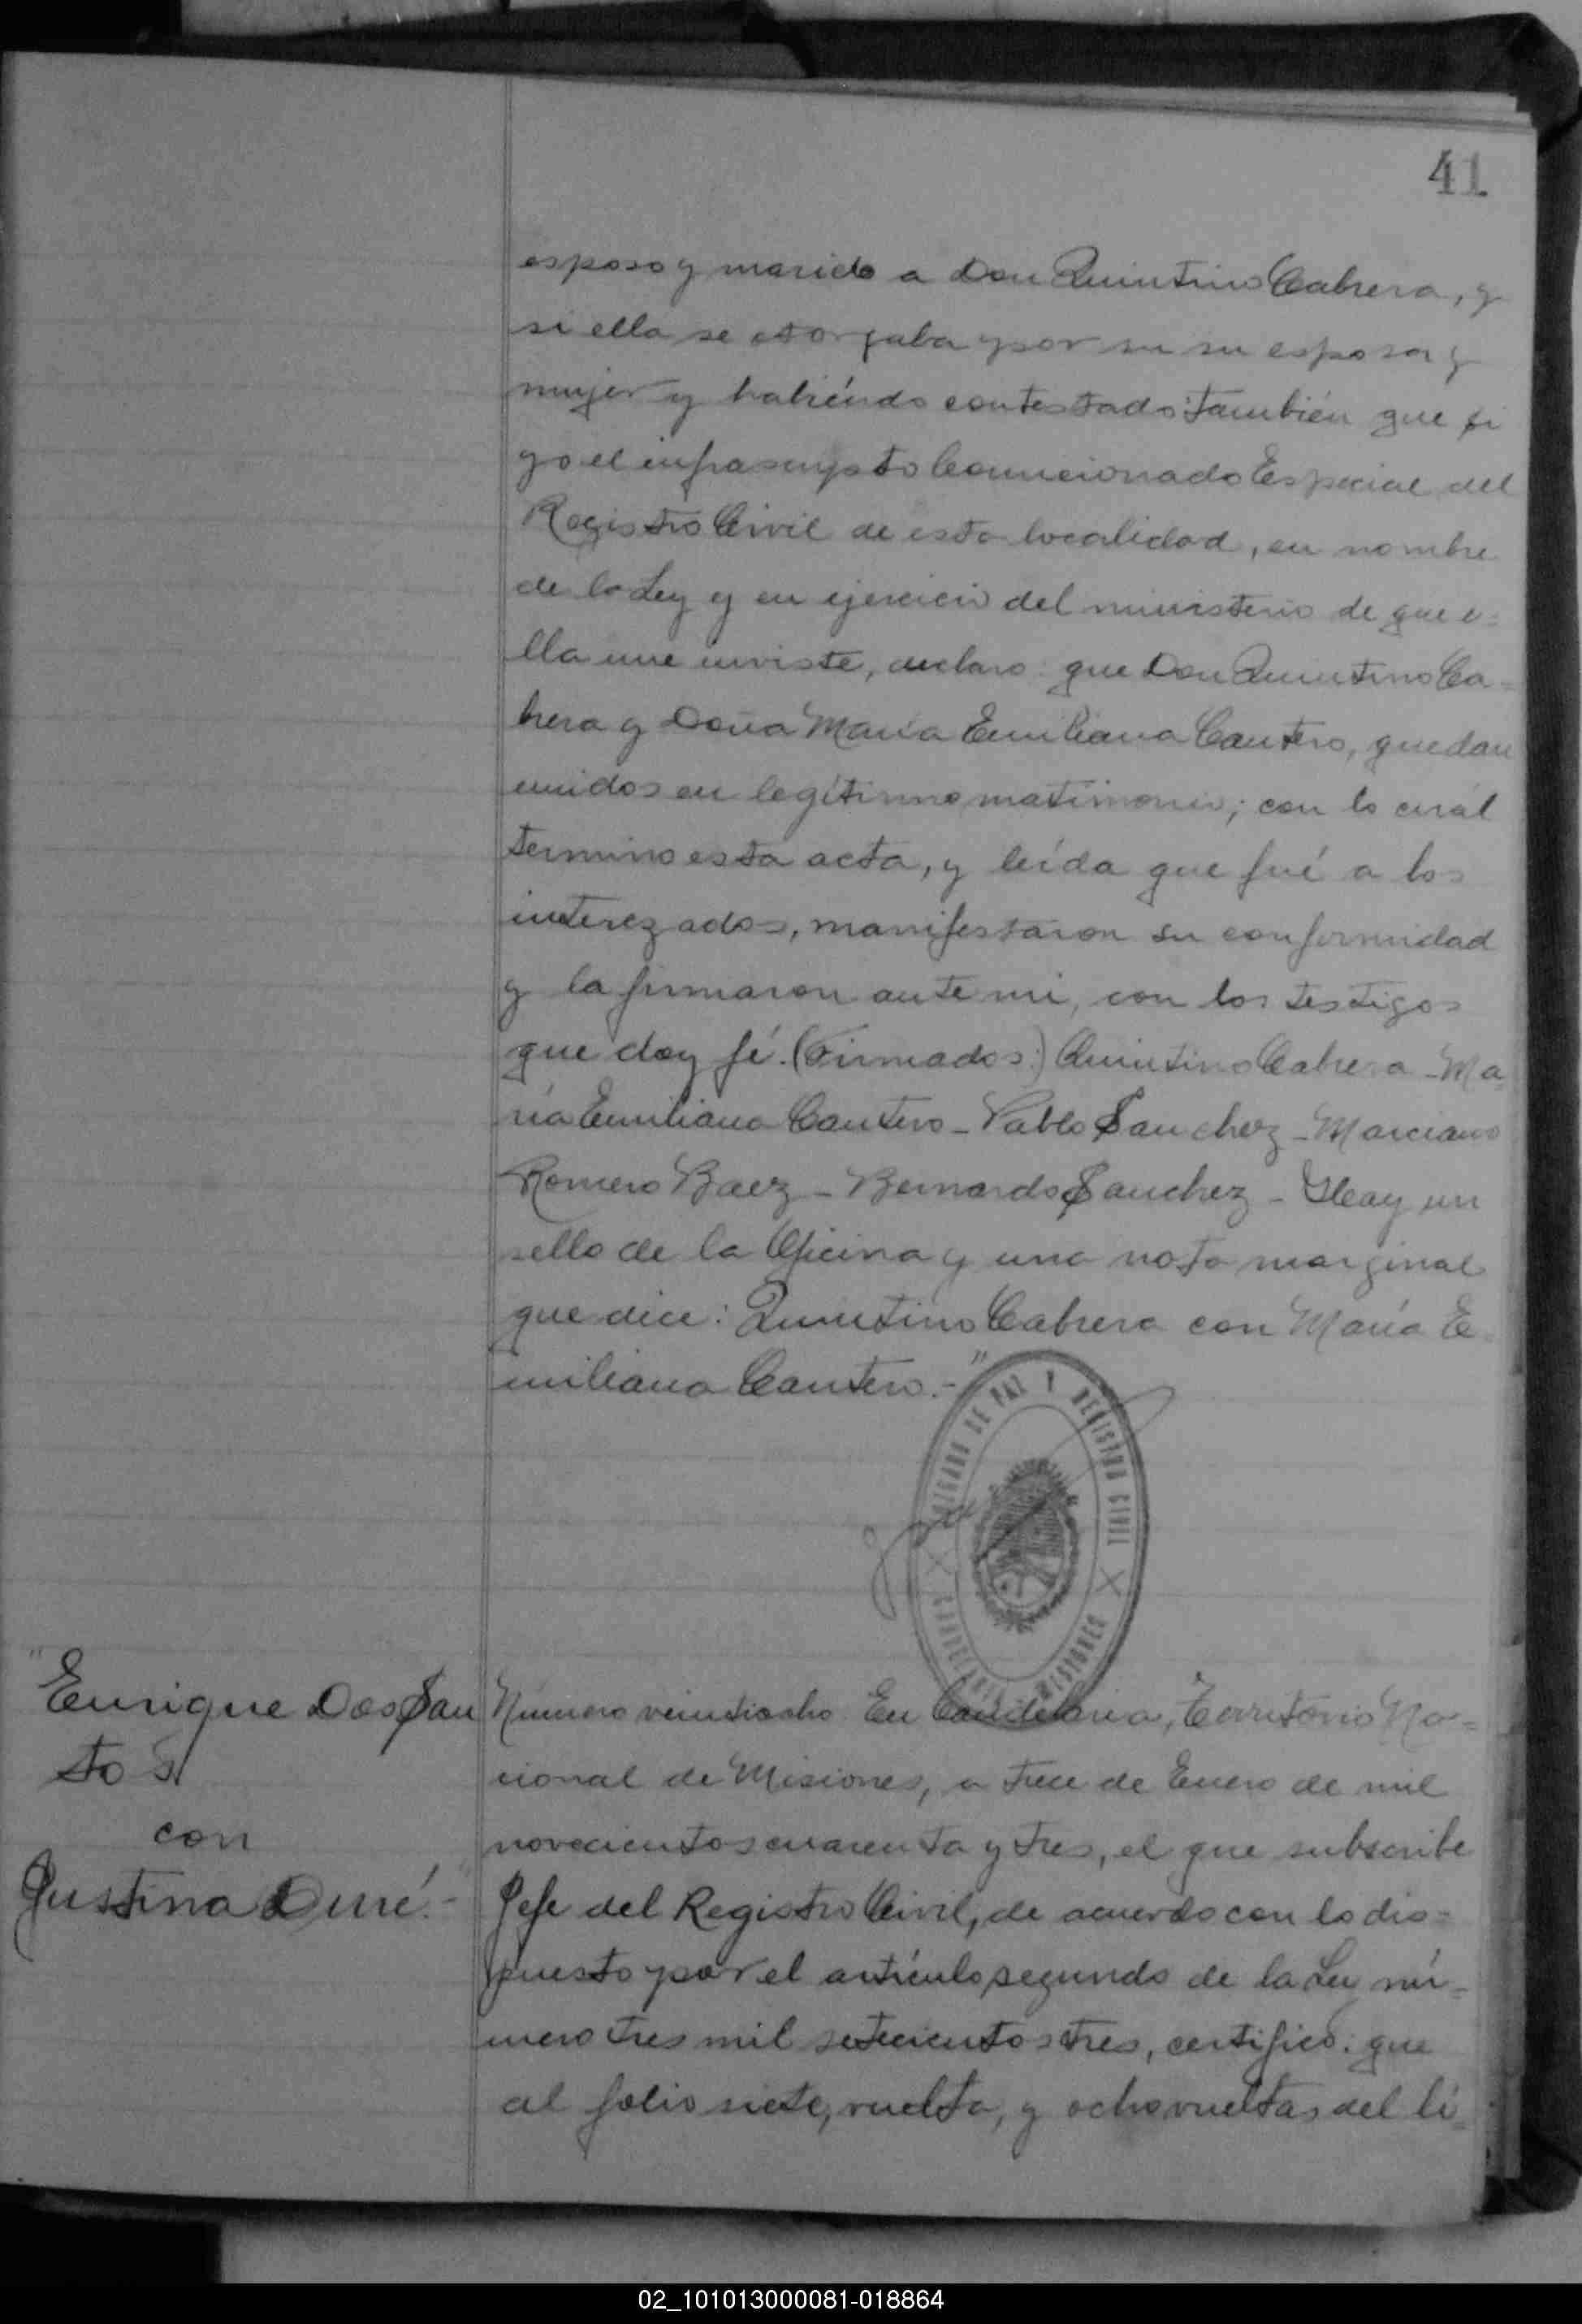 41
esposo y marido a Don Quintino Cabrera, y
si ella se otorgaba por su su esposa y
mujer y habiéndo contestado: también que si
yo el infrascripto Comicionado Especial del
Registro Civil de esta localidad, en nombre
de la Ley y en ejercicio del ministerio de que e=
lla me inviste, declaro: que Don Quintino Ca=
brera y Doña María Emiliana Cantero, quedan
unidos en legítimo matrimonio; con lo cuál
termino esta acta, y leída que fué a los
interezados, manifestaron su conformidad
y la firmaron ante mi, con los testigos
que doy fé. (Firmados:) Quintino Cabrera - Ma=
ría Emiliana Cantero - Pablo Sanchez - Marciano
Romero Baez - Bernardo Sanchez - Hay un
sello de la Oficina y una nota marginal
que dice: Quintino Cabrera con María E
miliana Cantero.-"
JUZGADO DE PAZ Y REGISTRO CIVIL
CANDELARIA MISIONES
"Enrique Dos San
tos
con
Justina Duré.-"
Número veintiocho. En Candelaria, Territorio Na=
cional de Misiones, a trece de Enero de mil
novecientos cuarenta y tres, el que subscribe
Jefe del Registro Civil, de acuerdo con lo dis=
puesto por el artículo segundo de la Ley nú=
mero tres mil setecientos tres, certifico: que
al folio siete, vuelta, y ocho vueltas del li=
02_101013000081-018864